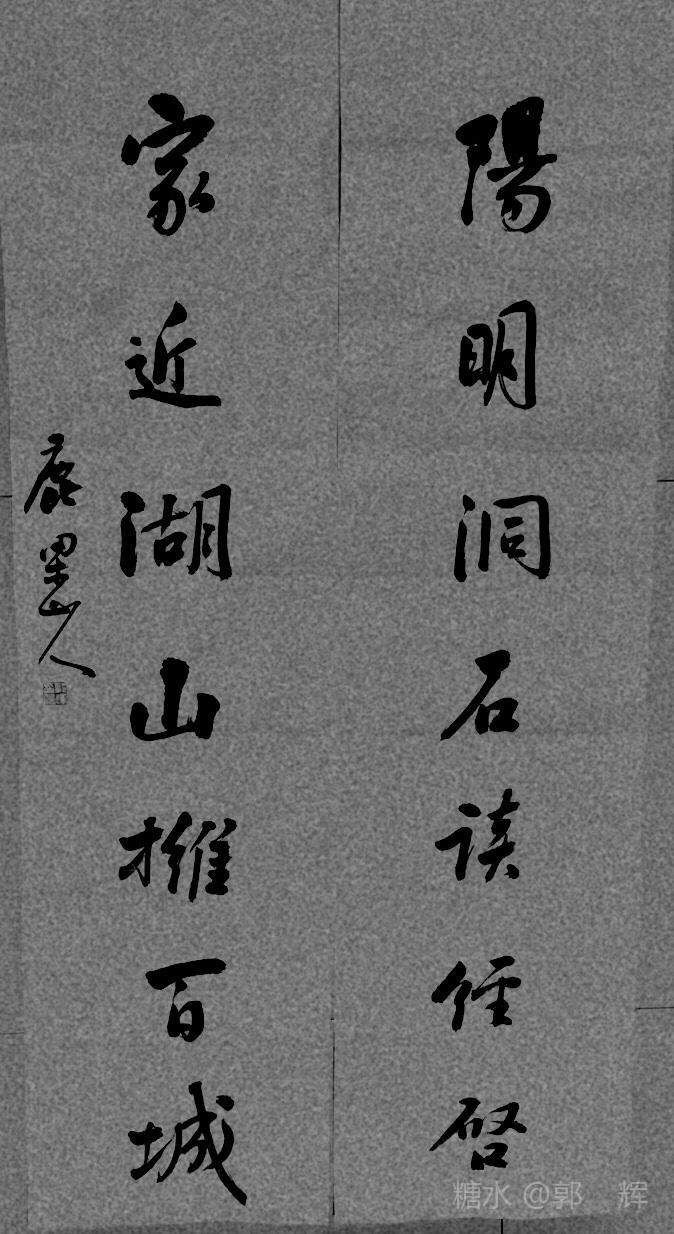 陽明洞石談經啓
家近湖山擁百城
鹿山人
糖水 @郭 辉